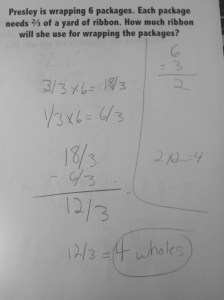 Presley is wrapping 6 packages. Each package
needs ⅔ of a yard of ribbon. How much ribbon
will she use for wrapping the packages?
3/3 x 6 = 18/3
1/3 x 6 = 6/3
18/3
- 6/3
12/3
12/3 = 4 wholes
6
÷ 3
2
2 x 2 = 4